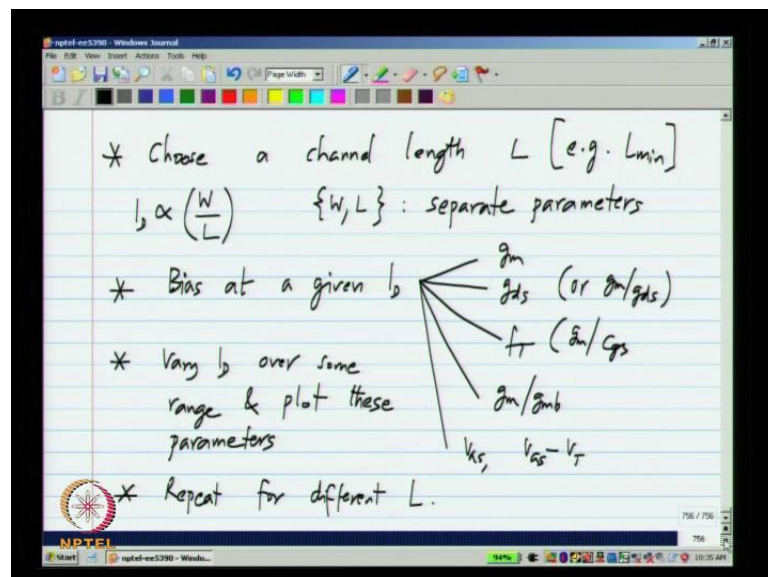 nptel-ee5390 - Windows Journal
File Edit View Insert Actions Tools Help
Page Width
B I
* Choose a channel length L [e.g. Lmin]
I_D ∝ (W/L) {W, L} : separate parameters
* Bias at a given I_D
gm
gds (or gm/gds)
f_T (gm/Cgs
gm/gmb
V_GS, V_GS - V_T
* Vary I_D over some
range & plot these
parameters
* Repeat for different L.
NPTEL
756 / 756
756
Start
nptel-ee5390 - Windo...
94%
10:35 AM